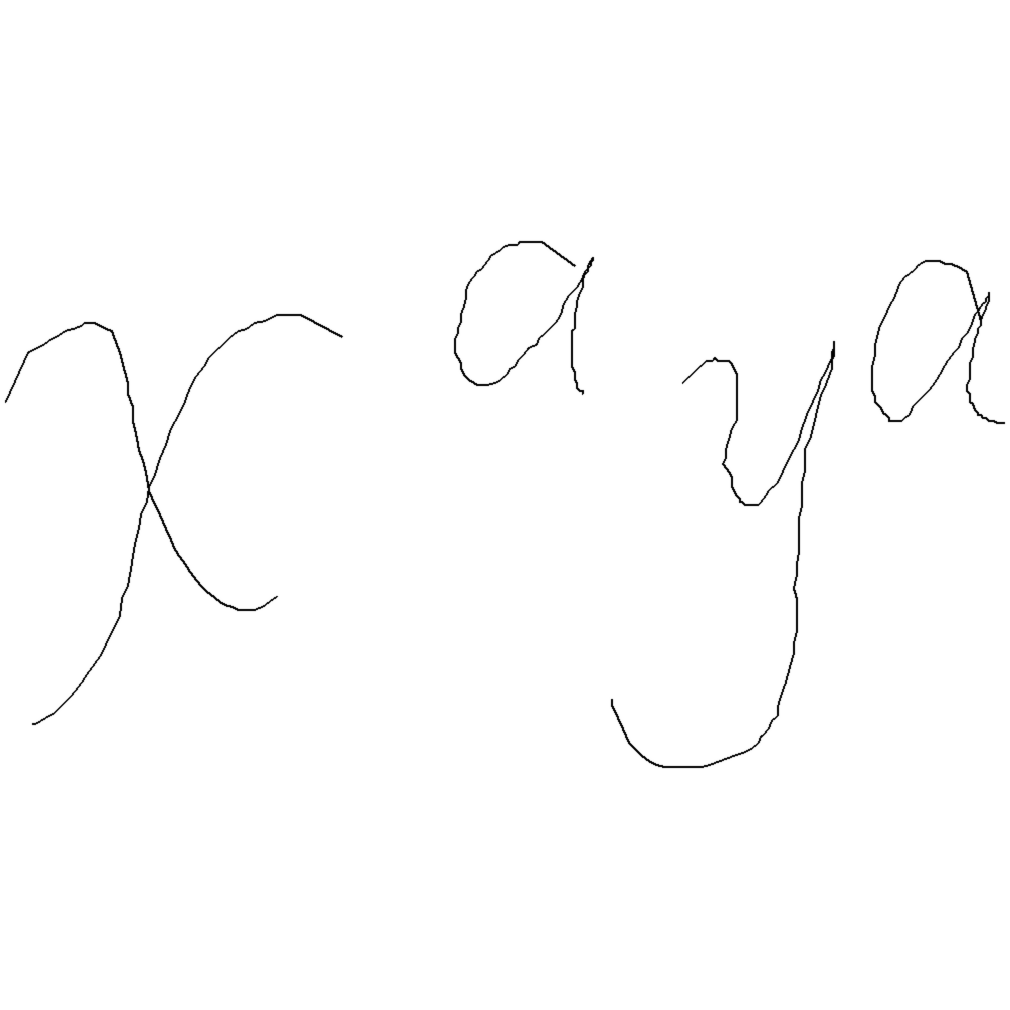 x^a y^a